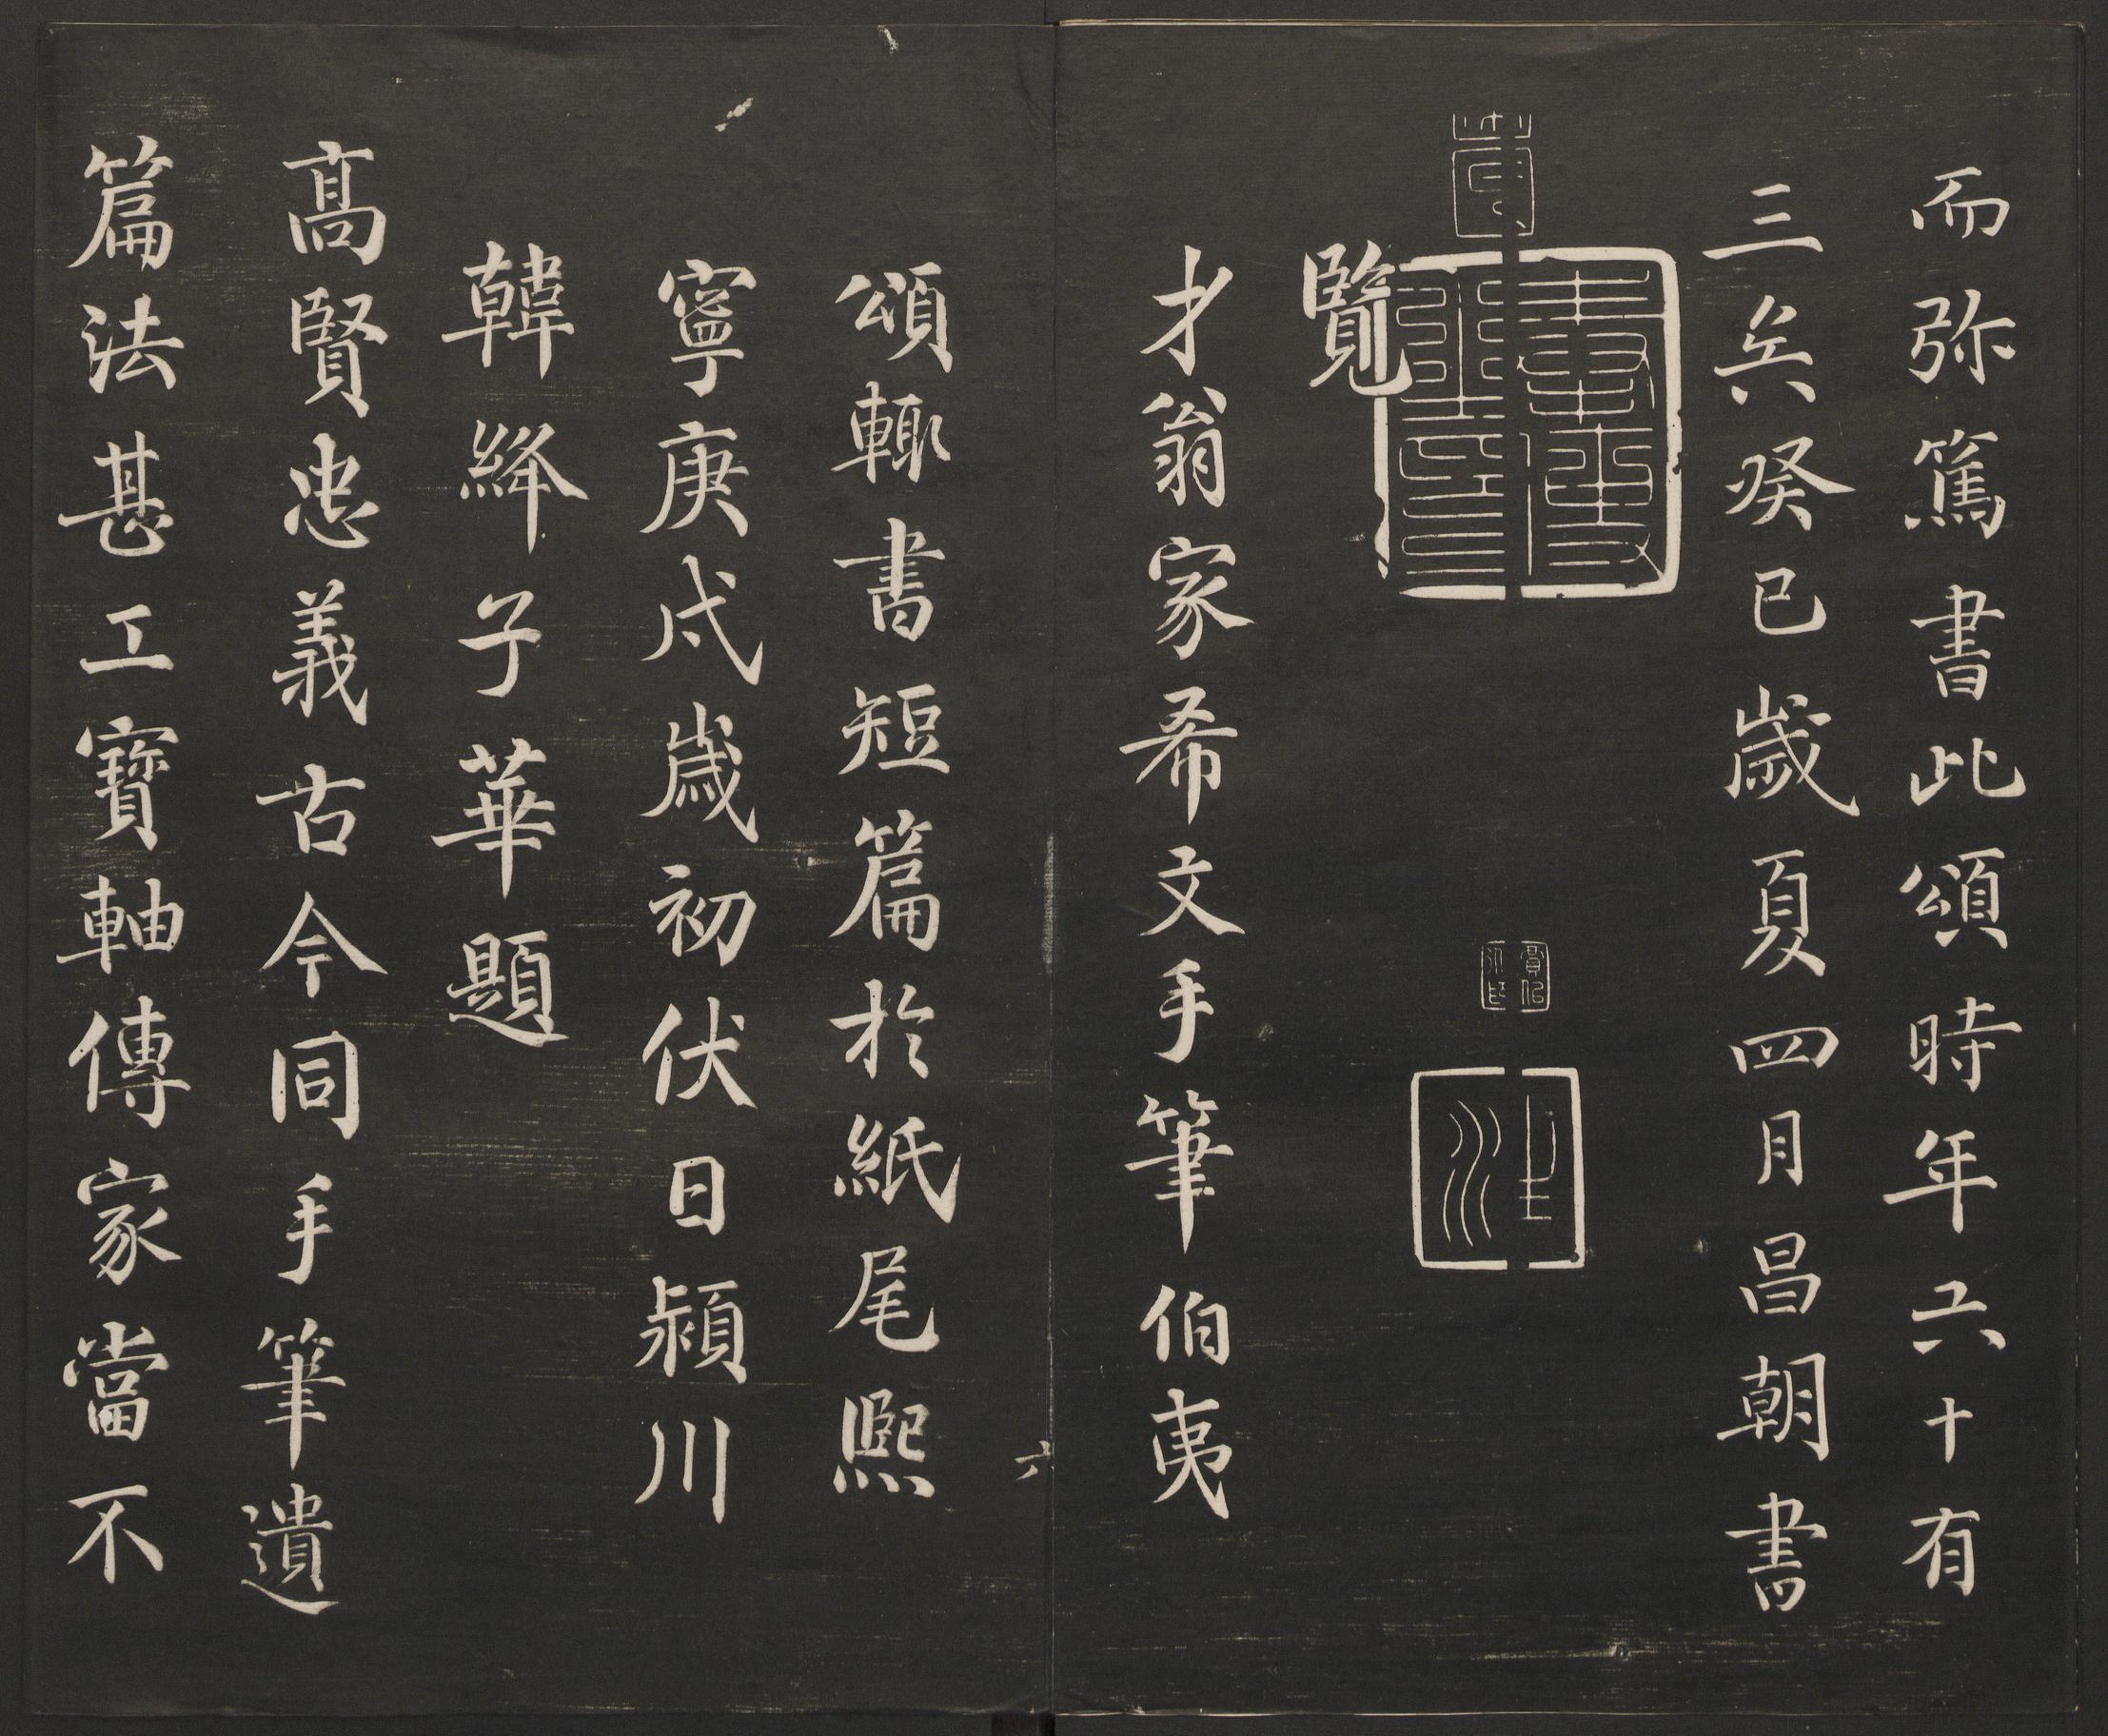 而弥篤書此頌時年六十有
三矣癸巳歲夏四月昌朝書
覽
才翁家希文手筆伯夷
六
頌輙書短篇於紙尾熈
寧庚戍歲初伏日潁川
韓絳子華題
髙賢忠義古今同手筆遺
篇法甚工寶軸傳家當不